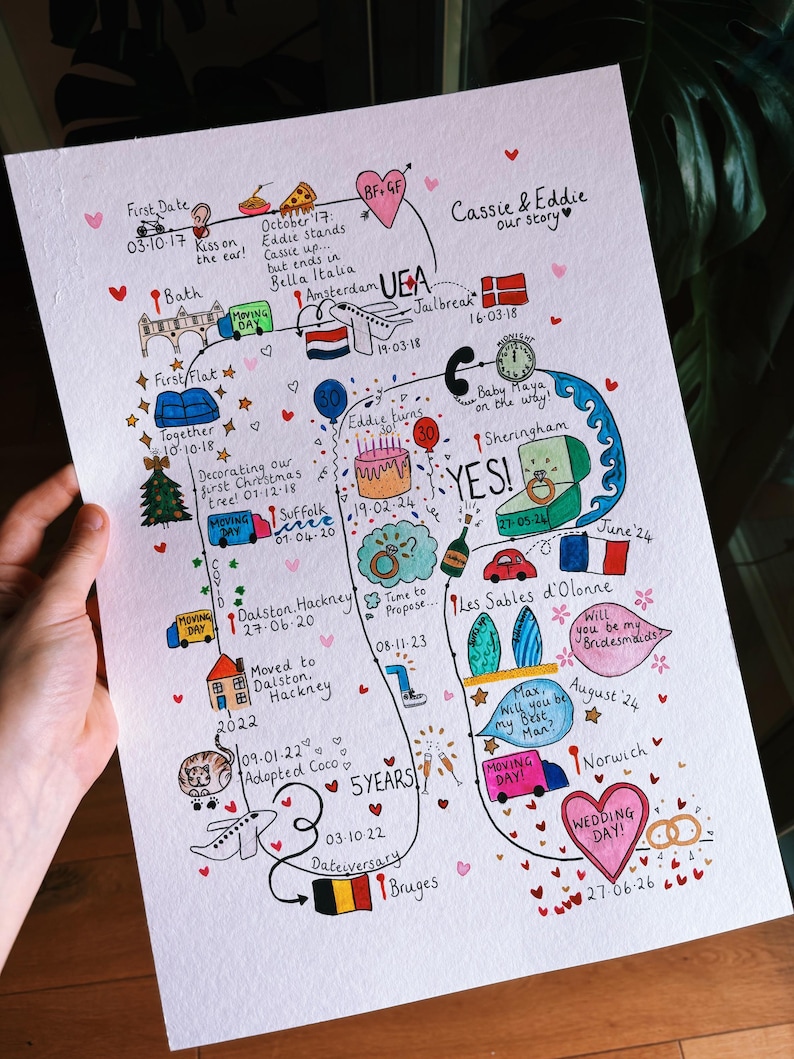 Cassie & Eddie
our story
First Date
03.10.17
Kiss on
the ear!
October '17:
Eddie stands
Cassie up...
but ends in
Bella Italia
BF + GF
UEA
Jailbreak
16.03.18
Amsterdam
19.03.18
MOVING
DAY
Bath
First Flat
Together
10.10.18
Decorating our
first Christmas
tree! 01.12.18
MOVING
DAY
Suffolk
01.04.20
COVID
MOVING
DAY
Dalston, Hackney
27.06.20
Moved to
Dalston,
Hackney
2022
09.01.22
Adopted Coco
03.10.22
Dateiversary
Bruges
5 YEARS
08.11.23
Time to
Propose...
30
Eddie turns
30!
30
19.02.24
MIDNIGHT
Baby Maya
on the way!
Sheringham
YES!
27.05.24
June '24
Les Sables d'Olonne
Will
you be my
Bridesmaids?
August '24
Max,
Will you be
my Best
Man?
MOVING
DAY!
Norwich
WEDDING
DAY!
27.06.26